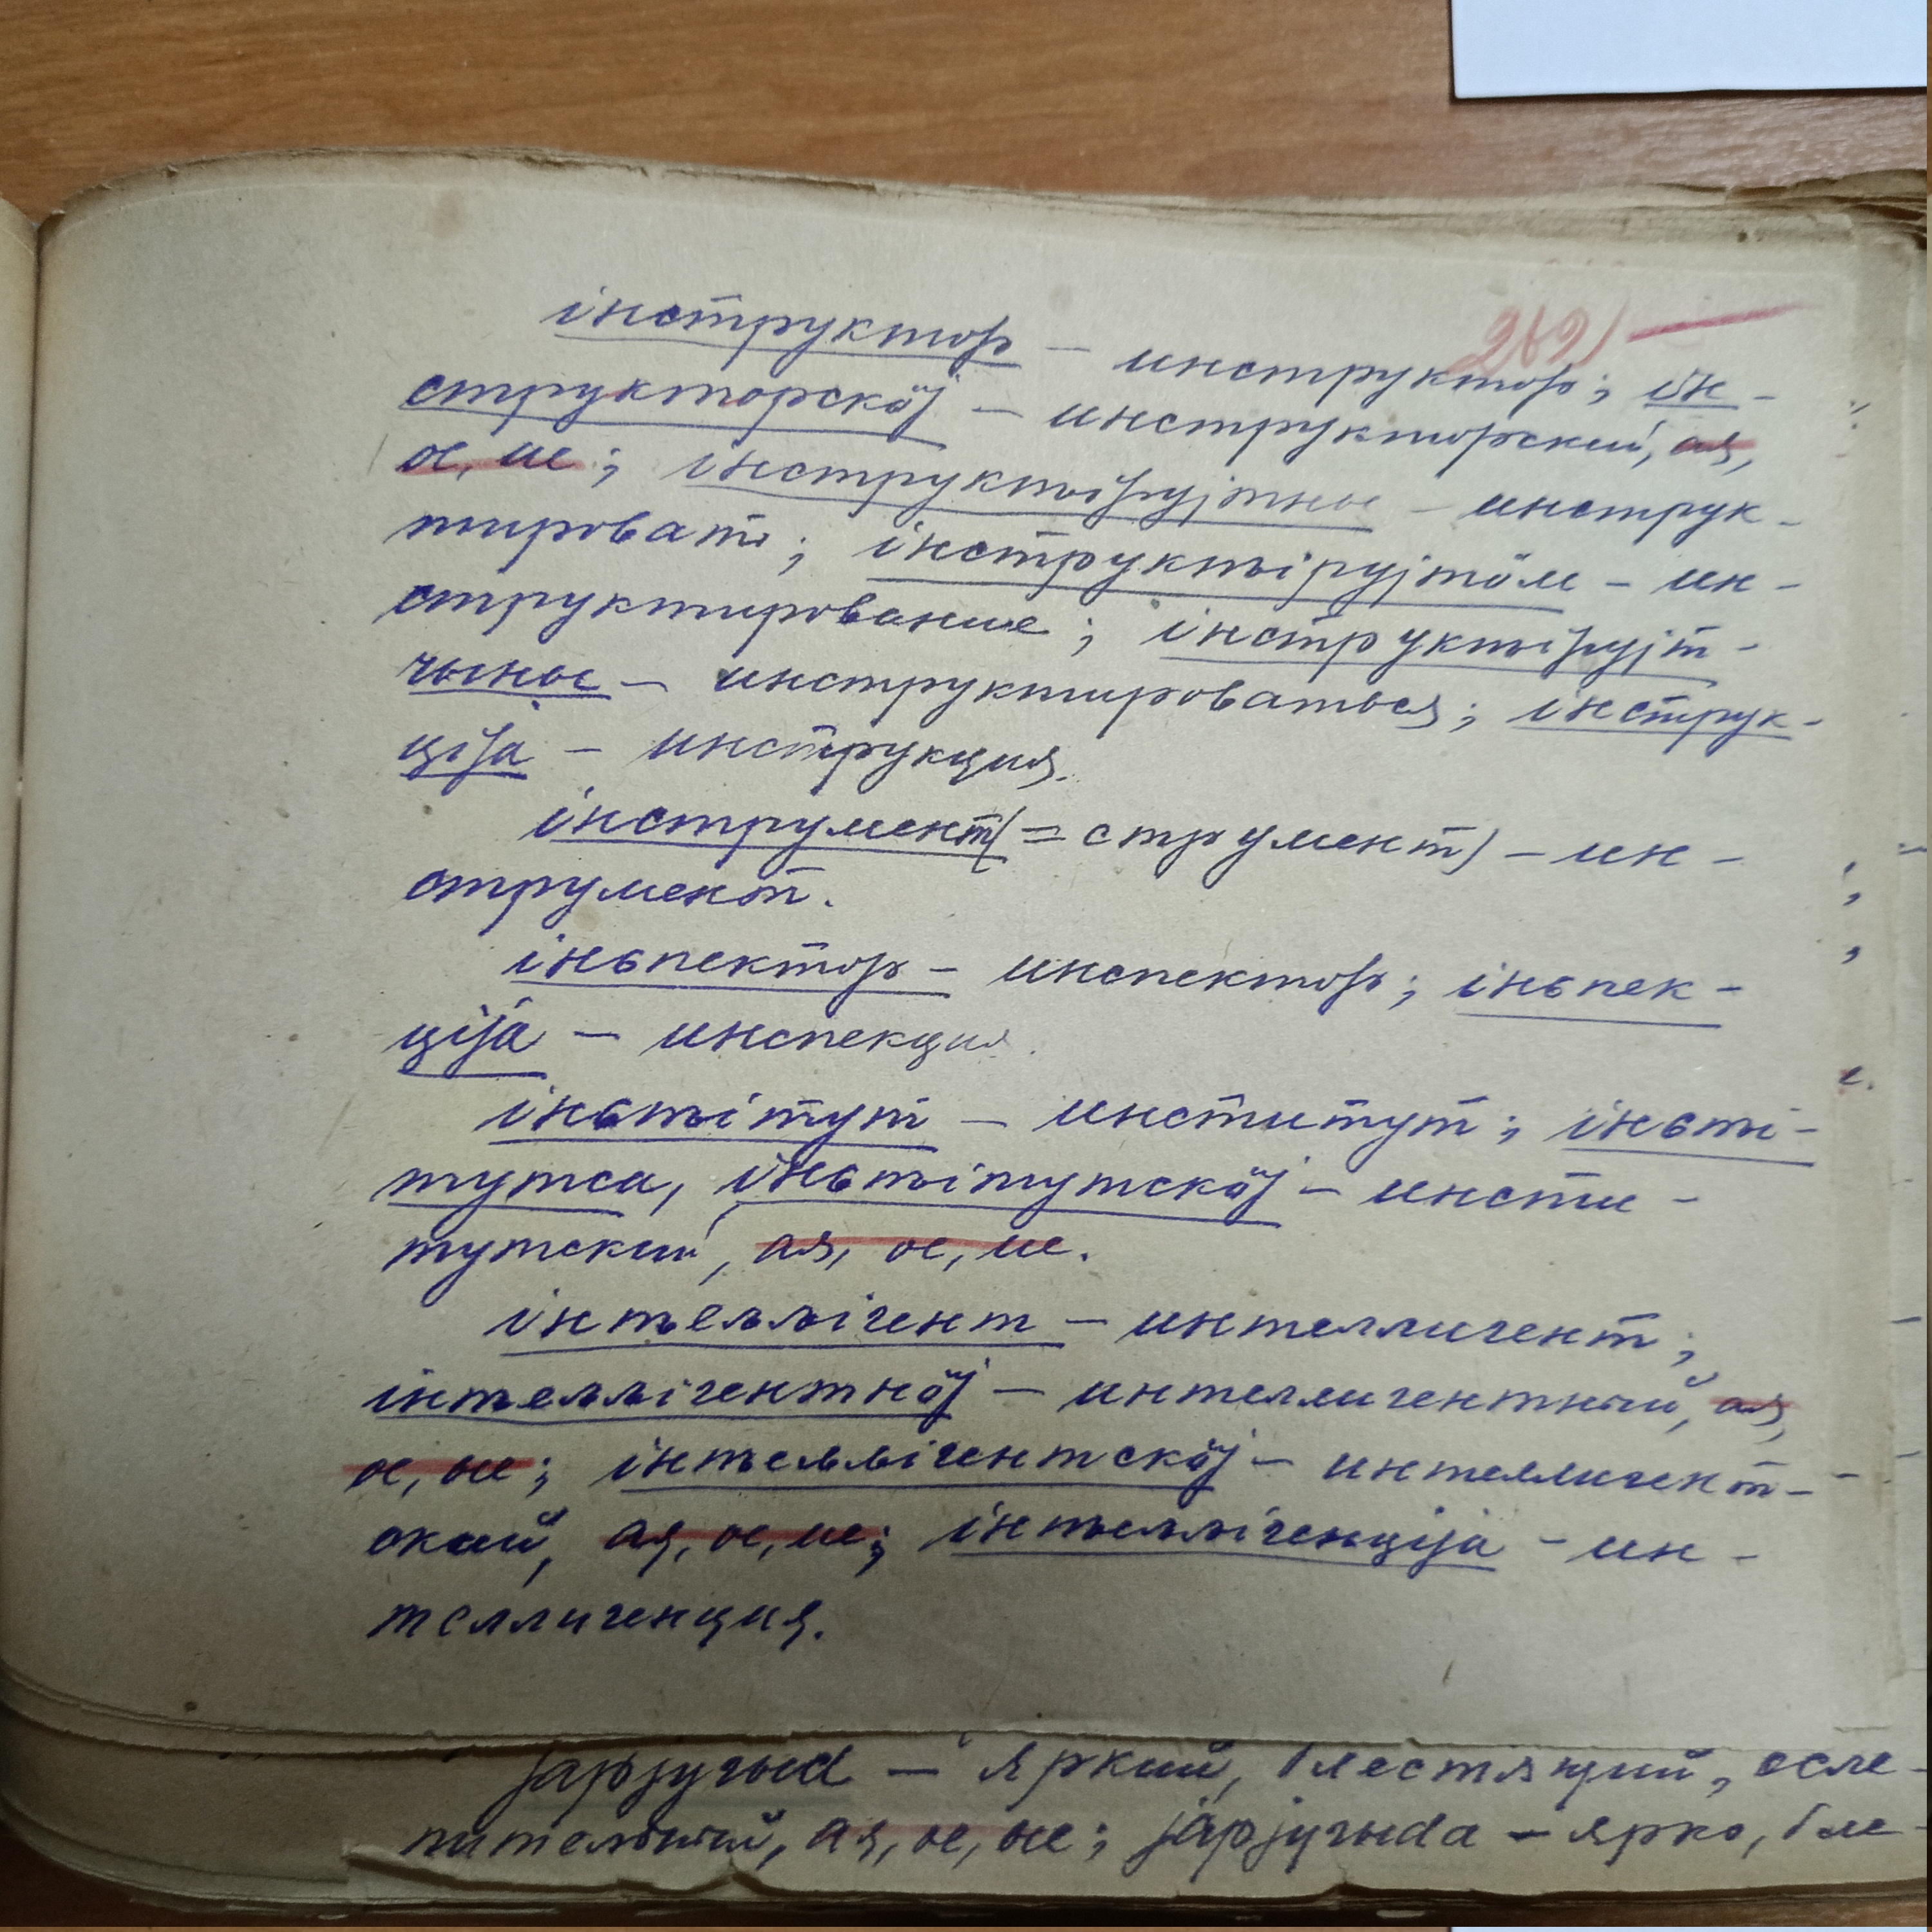 262)
інструктор – инструктор; ін-
структорскӧј – инструкторский, ая,
ое, ие; інструктьірујтны – инструк-
тировать; інструктьірујтӧм – ин-
структирование; інструктьірујт-
чыны – инструктироваться; інструк-
ціја – инструкция.
інструмент (= струмент) – ин-
струмент.
іньпектор – инспектор; іньпек-
ціја – инспекция.
іньтьітут – институт; іньтьі-
тутса, іньтьітутскӧј – инсти-
тутский, ая, ое, ие.
інтьеллігент – интеллигент;
інтьеллігентнӧј – интеллигентный, ая,
ое, ые; інтьеллігентскӧј – интеллигент-
ский, ая, ое, ие; інтьеллігенціја – ин-
теллигенция.
јарјугыԁ – яркий, блестящий, осле-
пительный, ая, ое, ые; јарјугыԁа – ярко, бле-